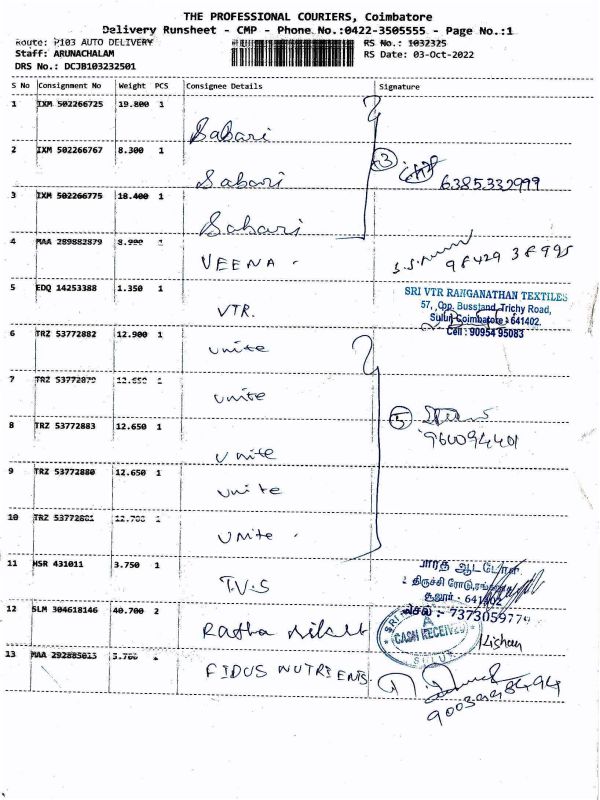 THE PROFESSIONAL COURIERS, Coimbatore
Delivery Runsheet - CMP - Phone No.:0422-3505555 - Page No.:1
Route: P103 AUTO DELIVERY RS No.: 1032325
Staff: ARUNACHALAM RS Date: 03-Oct-2022
DRS No.: DCJB103232501
S No Consignment No Weight PCS Consignee Details Signature
1 IXM 502266725 19.800 1 Sabari
2 IXM 502266767 8.300 1 Sabari 3 6385332999
3 IXM 502266775 18.400 1 Sabari
4 MAA 289882879 8.900 1 VEENA 98429 38995
5 EDQ 14253388 1.350 1 VTR.
SRI VTR RANGANATHAN TEXTILES
57, Opp. Busstand, Trichy Road,
Sulur, Coimbatore - 641402.
Cell : 90954 95083
6 TRZ 53772882 12.900 1 unite
7 TRZ 53772879 12.650 1 unite
8 TRZ 53772883 12.650 1 unite 5 960094401
9 TRZ 53772880 12.650 1 unite
10 TRZ 53772881 12.700 1 unite
11 HSR 431011 3.750 1 T.V.S
பாரத் ஆட்டோ
திருச்சி ரோடு,
சூலூர் - 641402
செல் :- 7373059774
12 SLM 304618146 40.700 2 Ratha
SRI
CASH RECEIVED
SULUR
Kishan
13 MAA 292885013 3.700 1 FIDUS NUTRIENTS.